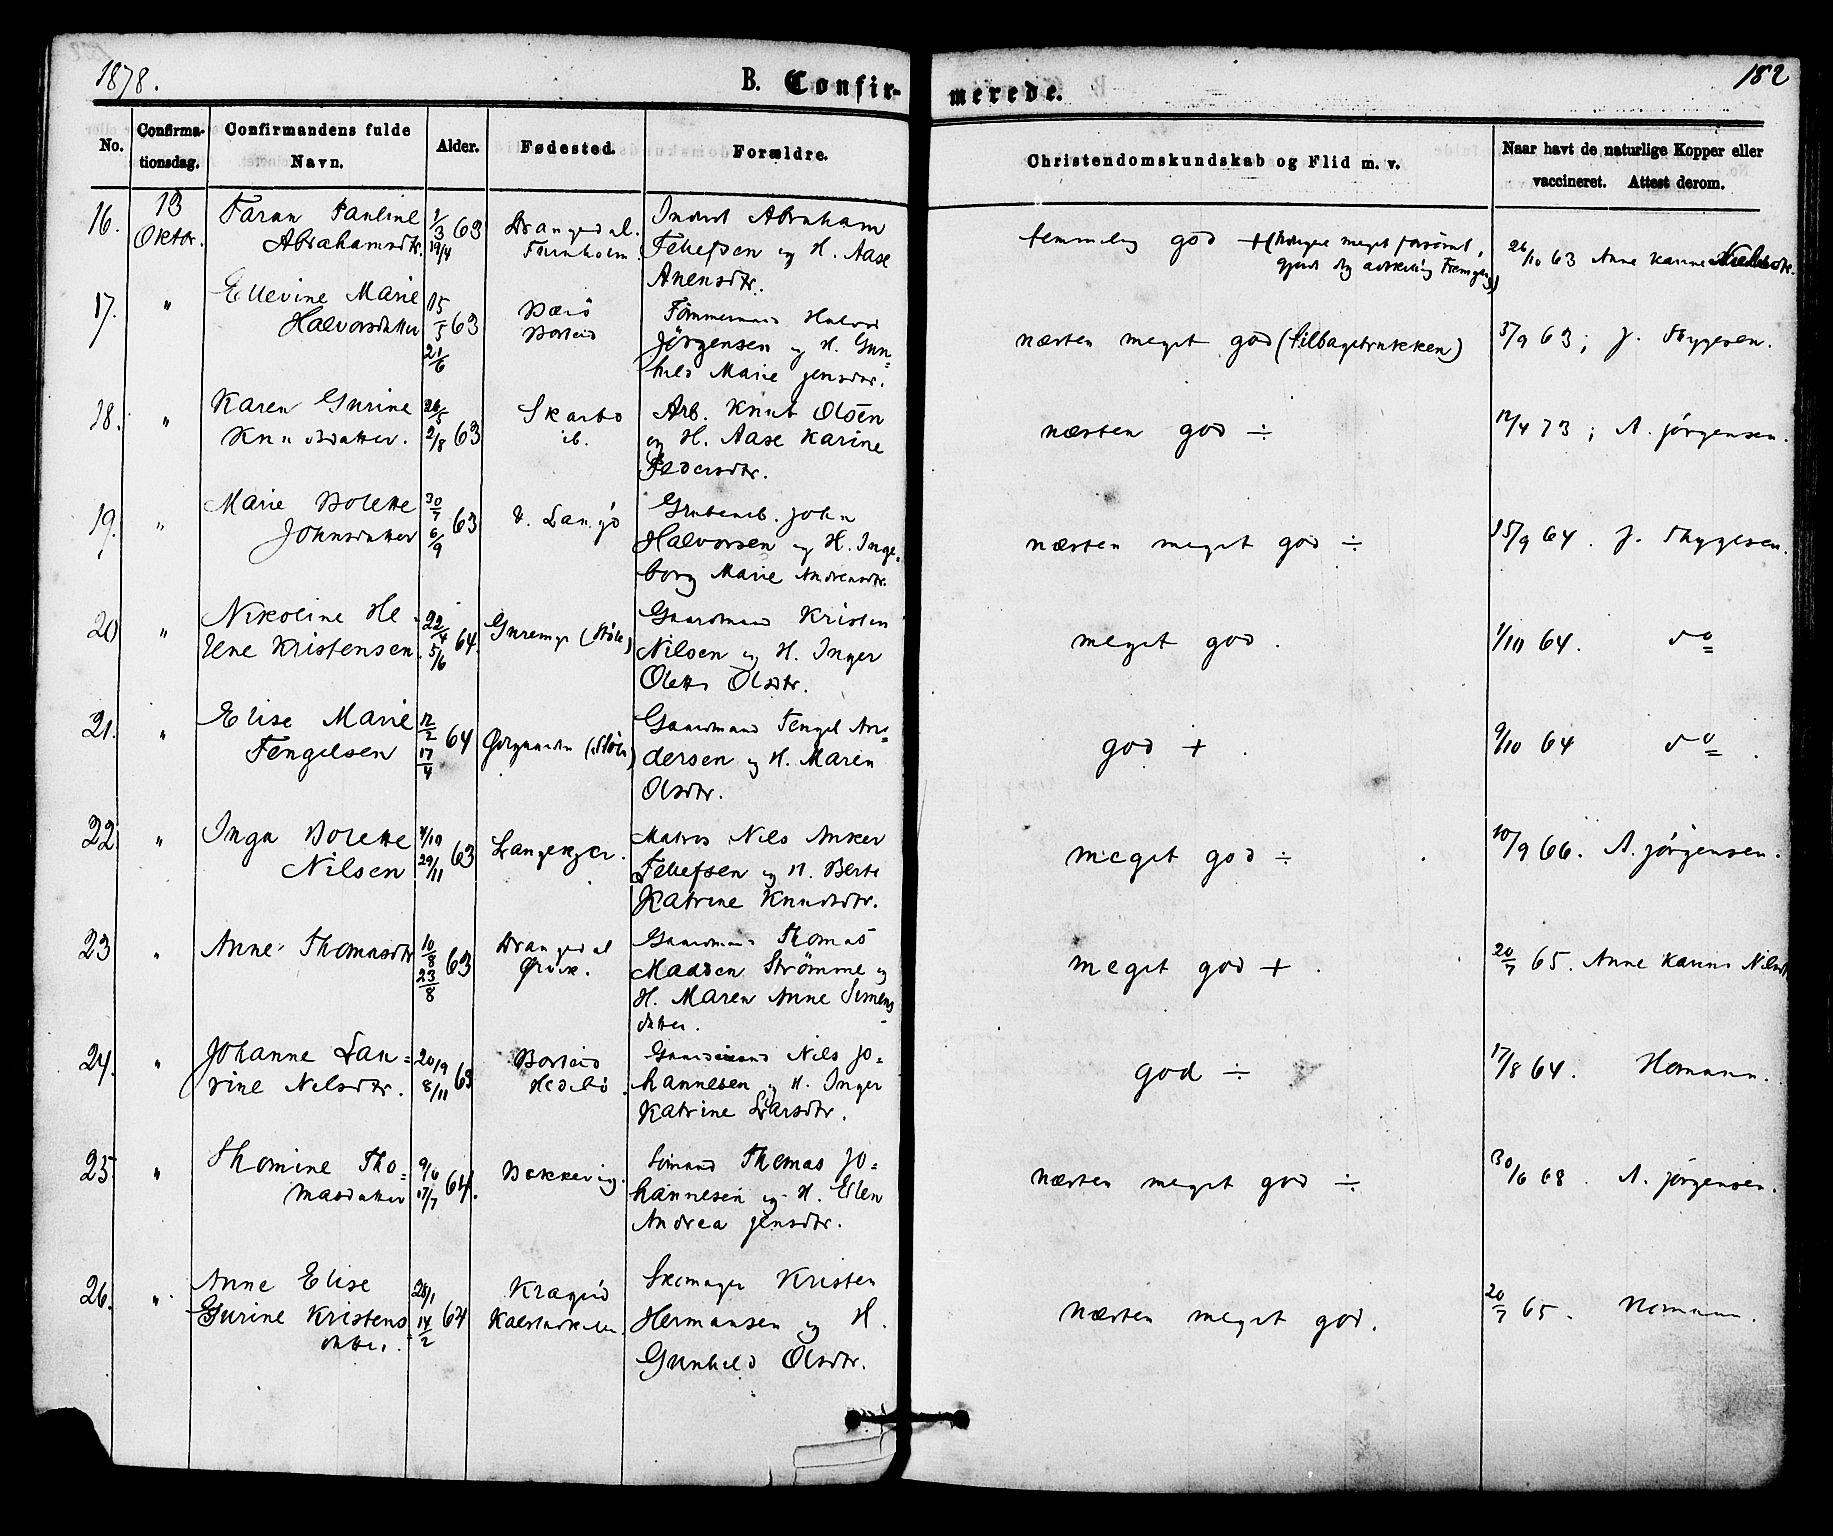 1878. B. Confir- merede. 182
No. Confirma- tionsdag. Confirmandens fulde Navn. Alder. Fødested. Forældre. Christendomskundskab og Flid m. v. Naar havt de naturlige Kopper eller vaccineret. Attest derom.
16. 13 Taran Pauline 1/3 63 Drangedal. Abraham temmelig god + (meget forsømt, 26/10 63 Anne Karine
Oktbr. Abrahamsdtr. 19/4 Tellefsen og H. Aase
17. " Ellevine Marie 15/5 63 Tømmermand Halvor
Halvorsdatter 21/6 Jørgensen og H. Gun= næsten meget god (tilbagetrukken) 5/9 63; J. Thygesen.
hild Marie Jensdtr.
18. " Karen Gurine 26/5 63 Skarbo Arb. Knut Olsen
Knudsdatter. 2/8 ib. og H. Aase Karine næsten god ÷ 12/4 73; A. Jørgensen.
Pedersdtr.
19. " Marie Bolette 30/7 63 V. Langø Grubearb. John
Johnsdatter 6/9 Halvorsen og H. Inge= næsten meget god ÷ 15/9 64. J. Thygesen.
borg Marie Andreasdtr.
20 " Nikoline He- 22/4 64. (Støle) Gaardmand Kristen
lene Kristensen. 5/6 Nilsen og H. Inger meget god. 1/10 64. do
Olette Olsdtr.
21. " Elise Marie 12/2 64 (Støle) Gaardmand Tengel An=
Tengelsen 17/4 dersen og H. Maren god + 9/10 64 do
Olsdtr.
22 " Inga Bolette 4/10 63 Langekjær. Matros Nils Anker
Nilsen 29/11 Tellefsen og H. Berte meget god ÷ 10/9 66. A. Jørgensen.
Katrine Knudsdtr.
23 " Anne Thomasdtr 10/8 63 Drangedal Gaardmand Thomas
23/8 Madsen Strømme og meget god + 20/7 65. Anne Karine Nilsdtr
H. Maren Anne Simens
datter.
24. " Johanne Lau= 20/9 63 Borteid Gaardmand Nils Jo=
rine Nilsdtr. 8/11 Hedebø. hannesen og H. Inger god ÷ 17/8 64. Homann.
Katrine Larsdtr.
25 " Thomine Tho= 9/6 64. Bekkevig. Sømand Thomas Jo=
masdatter 17/7 hannesen og H. Ellen næsten meget god ÷ 30/6 68. A. Jørgensen.
Andrea Jensdtr.
26. " Anne Elise 28/1 64 Kragerø Skomager Kristen
Gurine Kristens 14/2 Hermansen og H. næsten meget god. 20/7 65. Homann.
datter. Gunhild Olsdtr.